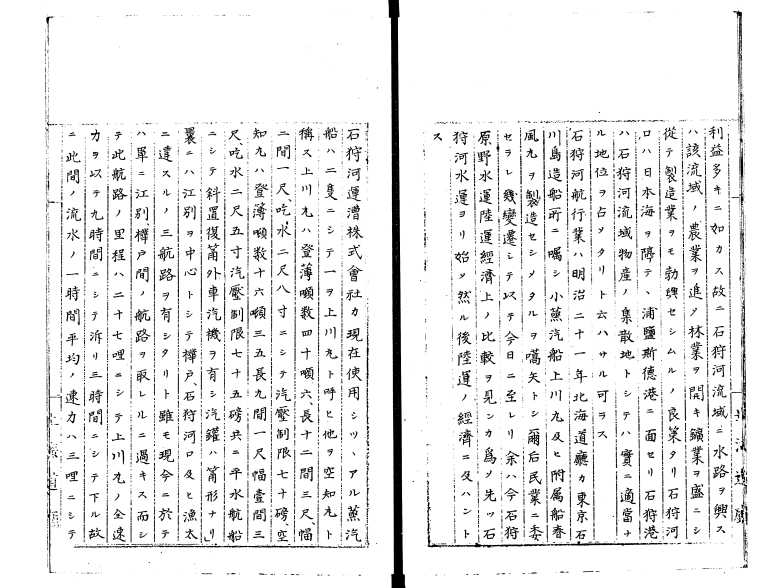 利益多キニ如カス故ニ石狩河流域ニ水路ヲ興ス
ハ該流域ノ農業ヲ進メ林業ヲ開キ鑛業ヲ盛ニシ
從テ製造業ヲモ勃興セシムルノ良策タリ石狩河
口ハ日本海ヲ隔テ、浦鹽斯德港ニ面セリ石狩港
ハ石狩河流域物産ノ集散地トシテハ實ニ適當ナ
ル地位ヲ占メタリト云ハサル可ラス
石狩河航行業ハ明治二十一年北海道廳カ東京石
川島造船所ニ囑シ小蒸汽船上川丸及ヒ附属船春
風丸ヲ製造セシメタルヲ嚆矢トシ爾后民業ニ委
セラレ幾變遷シテ以テ今日ニ至レリ余ハ今石狩
原野水運陸運經濟上ノ比較ヲ見ンカ爲メ先ツ石
狩河水運ヨリ始メ然ル後陸運ノ經濟ニ及ハント
ス
石狩河運漕株式會社カ現在使用シツヽアル蒸汽
船ハ二隻ニシテ一ヲ上川丸ト呼ヒ他ヲ空知丸ト
稱ス上川丸ハ登薄噸数四十噸六長十二間三尺、幅
二間一尺、吃水二尺八寸ニシテ汽壓制限七十磅、空
知丸ハ登簿噸数十六噸三五長九間一尺幅壹間三
尺、吃水二尺五寸汽壓制限七十五磅共ニ平水航船
ニシテ斜置復筩外車汽機ヲ有シ汽鑵ハ筩形ナリ
曩ニハ江別ヲ中心トシテ樺戸、石狩河口及ヒ漁太
ニ達スルノ三航路ヲ有シタリト雖モ現今ニ於テ
ハ單ニ江別樺戸間ノ航路ヲ取レルニ過キス而シ
テ此航路ノ里程ハ二十七哩ニシテ上川丸ノ全速
力ヲ以テ九時間ニシテ泝リ三時間ニシテ下ル故
ニ此間ノ流水ノ一時間平均ノ速力ハ三哩ニシテ